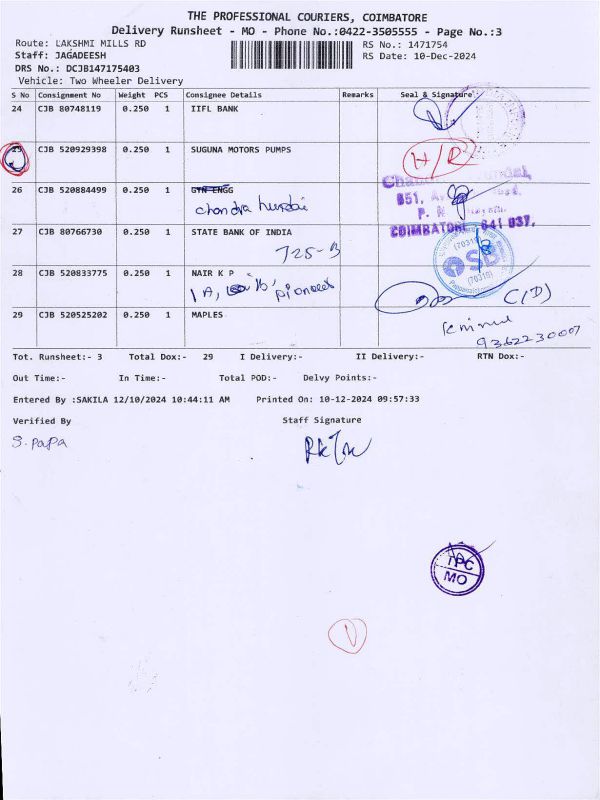 THE PROFESSIONAL COURIERS, COIMBATORE
Delivery Runsheet - MO - Phone No.:0422-3505555 - Page No.:3
Route: LAKSHMI MILLS RD
RS No.: 1471754
Staff: JAGADEESH
RS Date: 10-Dec-2024
DRS No.: DCJB147175403
Vehicle: Two Wheeler Delivery
S No Consignment No Weight PCS Consignee Details Remarks Seal & Signature
24 CJB 80748119 0.250 1 IIFL BANK
25 CJB 520929398 0.250 1 SUGUNA MOTORS PUMPS H/R
26 CJB 520884499 0.250 1 GTN ENGG
851,
P. N
COIMBATORE 641 037.
27 CJB 80766730 0.250 1 STATE BANK OF INDIA
725-B
(70318)
SBI
(70318)
28 CJB 520833775 0.250 1 NAIR K P
1A, pioneer
29 CJB 520525202 0.250 1 MAPLES
9362230007
Tot. Runsheet:- 3 Total Dox:- 29 I Delivery:- II Delivery:- RTN Dox:-
Out Time:- In Time:- Total POD:- Delvy Points:-
Entered By :SAKILA 12/10/2024 10:44:11 AM Printed On: 10-12-2024 09:57:33
Verified By Staff Signature
S. papa
TPC
MO